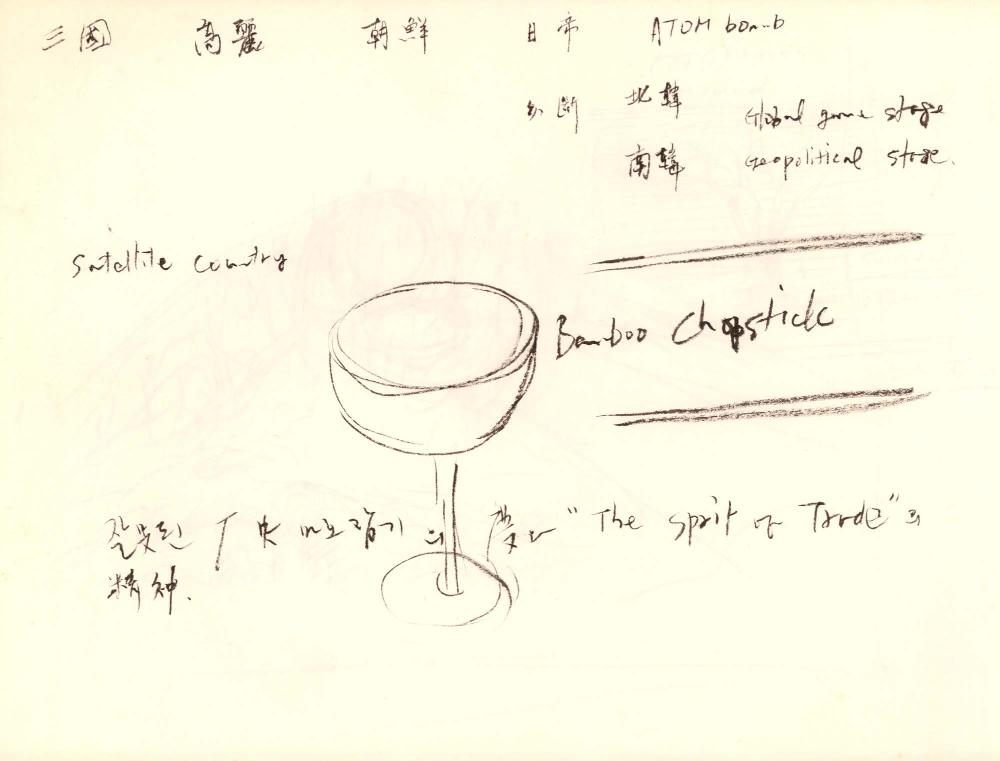 三國 高麗 朝鮮 日帝 ATOM bomb
分斷 北韓 Global game stage
南韓 Geopolitical stage.
Satellite country
Bamboo Chopstick
잘못된 "The Sprit of Trade"의
精神.